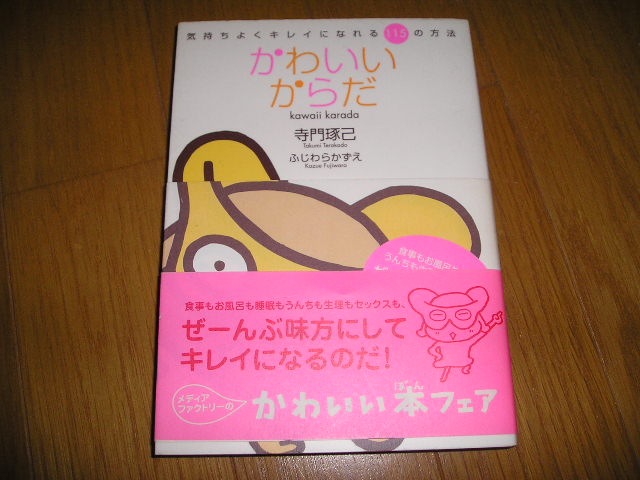 気持ちよくキレイになれる115の方法
かわいい
からだ
kawaii karada
寺門琢己
Takumi Terakado
ふじわらかずえ
Kazue Fujiwara
食事もお風呂も
うんちも
食事もお風呂も睡眠もうんちも生理もセックスも、
ぜーんぶ味方にして
キレイになるのだ!
メディア
ファクトリーの
かわいい本フェア
ぼーん